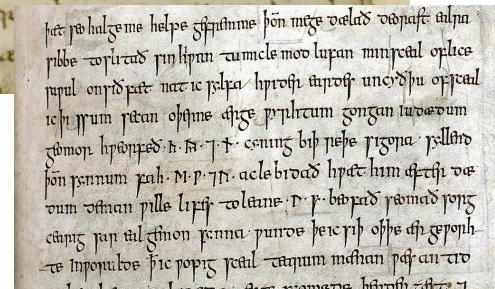 þæt seo halge me helpe gefremme þon̄ mege dælað deorast ealra
sibbe toslitað sinhiwan tu micle mod lufan minsceal oflice
sawul onsiðfæt nat ic sylfa hwider eardes uncyðgu ofsceal
ic þissum secan oþerne ærge wyrhtum gongan iudædum
geomor hweorfeð ·ᚳ·ᚣ·⁊·ᚾ· cyning biþ reþe sigora syllend
þon̄ synnum fah ·ᛖ·ᚹ·⁊ᚢ· acle bidað hwæt him æfter dæ
dum deman wille lifes toleane ·ᛚ·ᚠ· beofað seomað sorg
cearig sar eal gemon synna wunde þe ic siþ oþþe ær geworh
te inworulde ꝥ ic wopig sceal tearum mænan wæs an tid